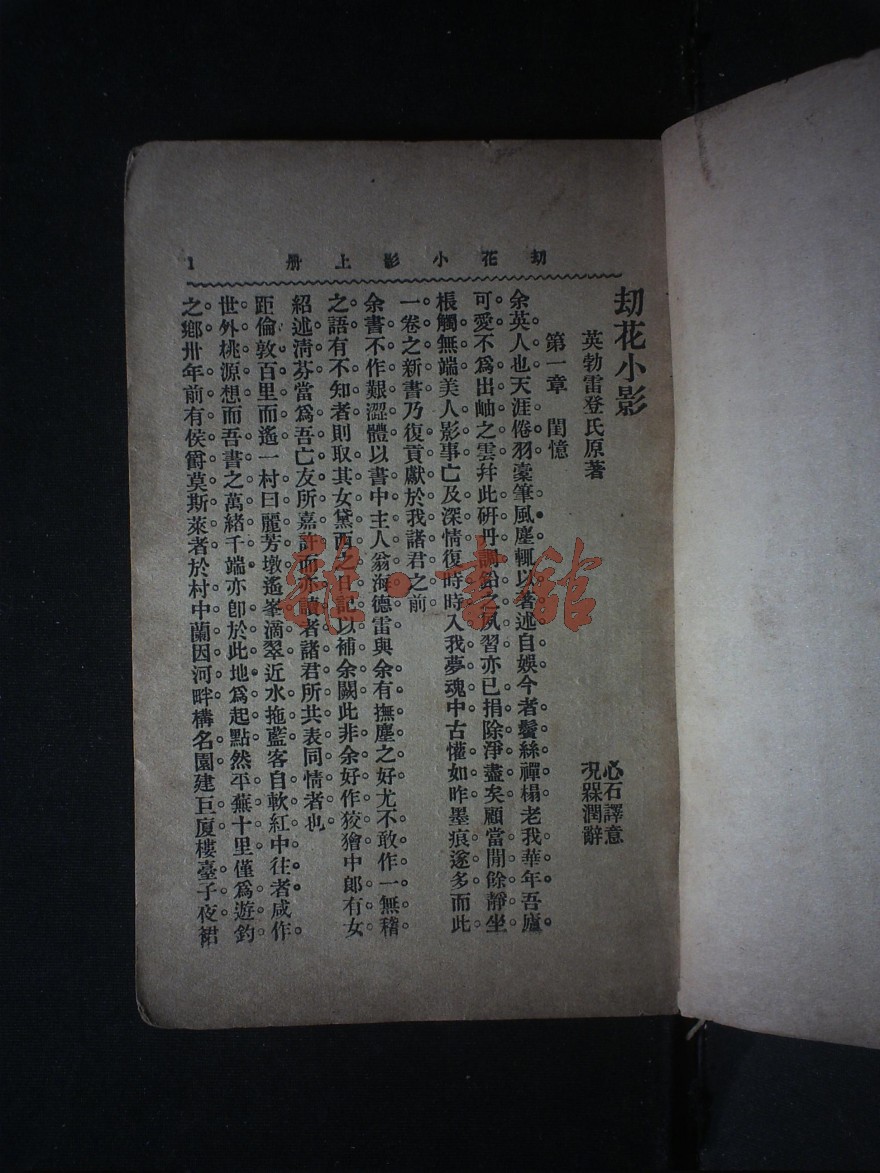 劫花小影上册 1
劫花小影
英勃雷登氏原著
心石譯意
況槑潤辭
第一章 閨憶
余英人也天涯倦羽橐筆風塵輒以著述自娛今者鬢絲禪榻老我華年吾廬
可愛不爲出岫之雲幷此研丹調鉛之夙習亦已捐除淨盡矣顧當閒餘靜坐
棖觸無端美人影事亡友深情復時時入我夢魂中古懽如昨墨痕遂多而此
一卷之新書乃復貢獻於我諸君之前
余書不作艱澀體以書中主人翁海德雷與余有撫塵之好尤不敢作一無稽
之語有不知者則取其女黛西之日記以補余闕此非余好作狡獪中郎有女
紹述清芬當爲吾亡友所嘉許而亦讀者諸君所共表同情者也
距倫敦百里而遙一村曰麗芳墩遙峯滴翠近水拖藍客自軟紅中往者咸作
世外桃源想而吾書之萬緒千端亦卽於此地爲起點然平蕪十里僅爲遊釣
之鄉卅年前有侯爵莫斯萊者於村中蘭因河畔構名園建巨廈樓臺子夜裙
雜·書館